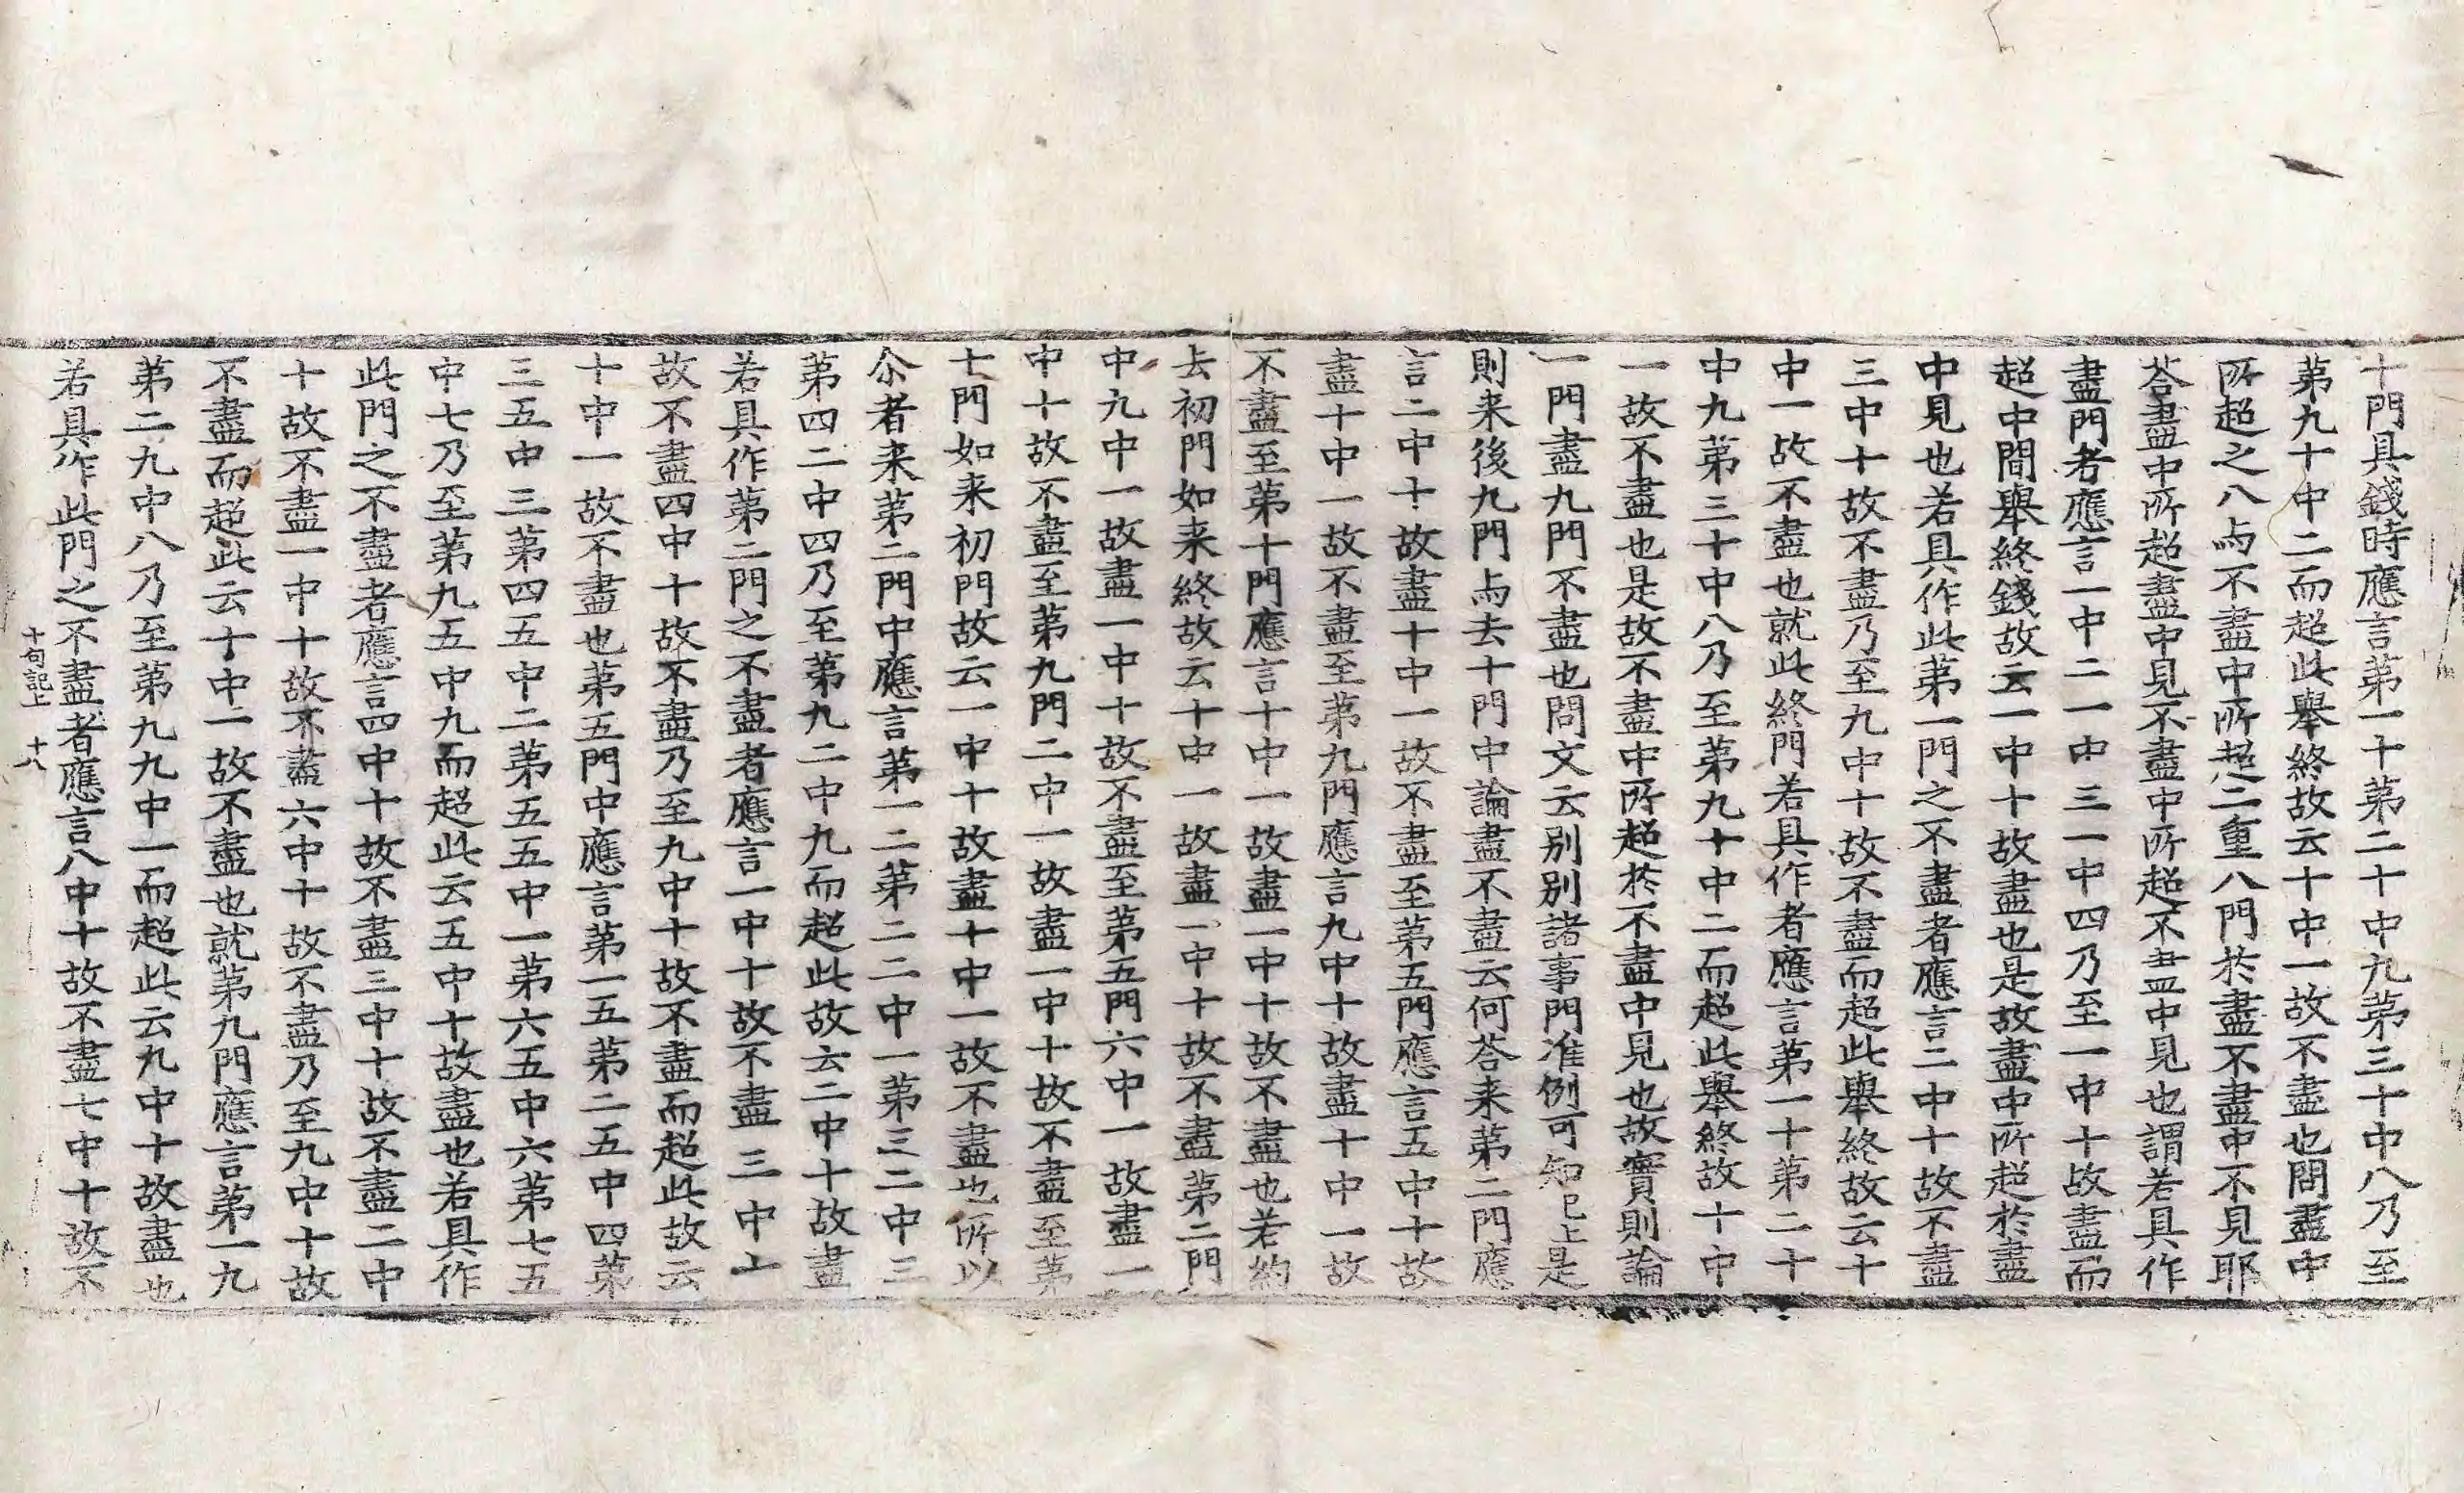 十門具錢時應言第一十第二十中九第三十中八乃至
第九十中二而超此舉終故云十中一故不盡也問盡中
所超之八与不盡中所超二重八門於盡不盡中不見耶
荅盡中所超盡中見不盡中所超不盡中見也謂若具作
盡門者應言一中二一中三一中四乃至一中十故盡而
超中間舉終錢故云一中十故盡也是故盡中所超於盡
中見也若具作此第一門之不盡者應言二中十故不盡
三中十故不盡乃至九中十故不盡而超此舉終故云十
中一故不盡也就此終門若具作者應言第一十第二十
中九第三十中八乃至第九十中二而超此舉終故十中
一故不盡也是故不盡中所超於不盡中見也故實則論
一門盡九門不盡也問文云別別諸事門准例可知已上是
則来後九門与去十門中論盡不盡云何荅来第二門應
言二中十故盡十中一故不盡至第五門應言五中十故
盡十中一故不盡至第九門應言九中十故盡十中一故
不盡至第十門應言十中一故盡一中十故不盡也若約
去初門如来終故云十中一故盡一中十故不盡第二門
中九中一故盡一中十故不盡至第五門六中一故盡一
中十故不盡至第九門二中一故盡一中十故不盡至第
十門如来初門故云一中十故盡十中一故不盡也所以
尒者来第二門中應言第一二第二二中一第三二中三
第四二中四乃至第九二中九而超此故云二中十故盡
若具作第二門之不盡者應言一中十故不盡三中十
故不盡四中十故不盡乃至九中十故不盡而超此故云
十中一故不盡也第五門中應言第一五第二五中四第
三五中三第四五中二第五五中一第六五中六第七五
中七乃至第九五中九而超此云五中十故盡也若具作
此門之不盡者應言四中十故不盡三中十故不盡二中
十故不盡一中十故不盡六中十故不盡乃至九中十故
不盡而超此云十中一故不盡也就第九門應言第一九
第二九中八乃至第九九中一而超此云九中十故盡也
若具作此門之不盡者應言八中十故不盡七中十故不
十句記上 十八